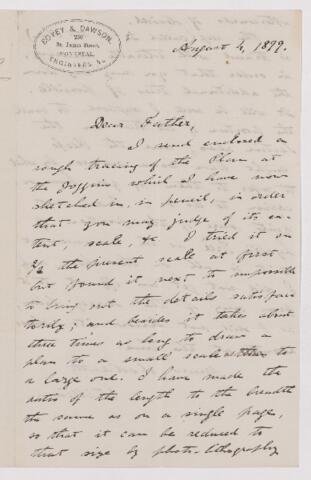 BOVEY & DAWSON,
St. James Street,
MONTREAL.
ENGINEERS, &c.
August 4, 1879.
Dear Father,
I send enclosed a
rough tracing of the Plan at
the Joggins which I have now
sketched in, in pencil, in order
that you may judge of its ex-
tent, scale, &c. I tried it on
the present scale at first
but found it next to impossible
to bring out the details satisfac
torily; and besides it takes about
three times as long to draw a
plan to a small scale as to
a large one. I have made the
ratio of the length to the breadth
the same as on a single page,
so that it can be reduced to
that size by photo-lithography